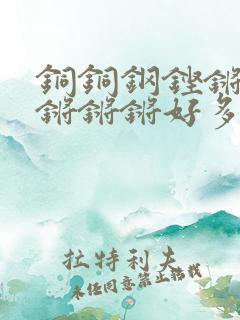 銅銅鋼鏗鏘
鏘鏘鏘好多
拉特利夫
未任同意禁止轉載